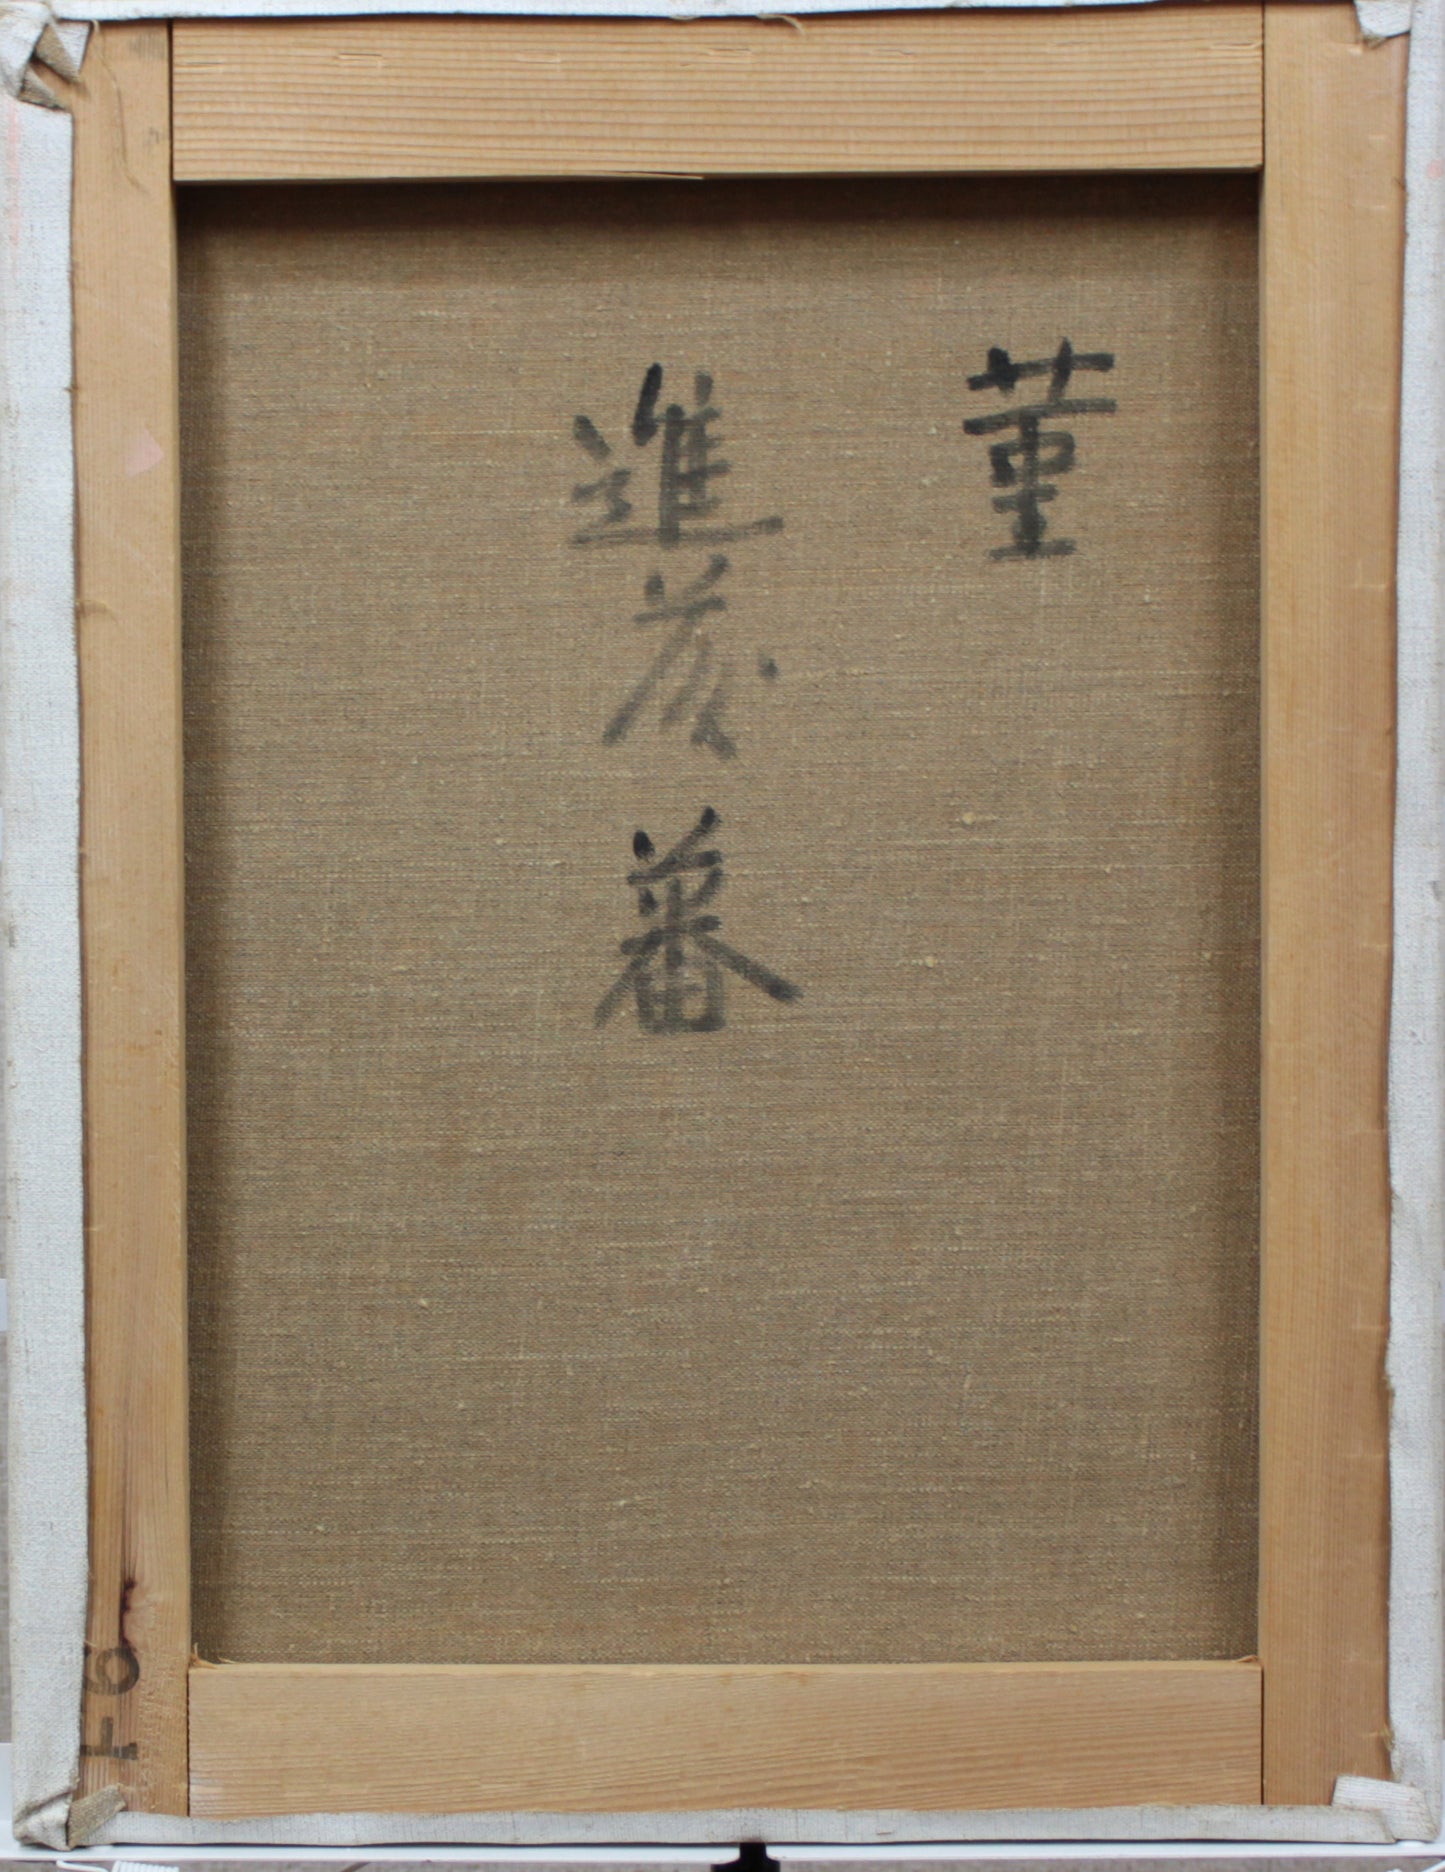 菫
進藤蕃
F6